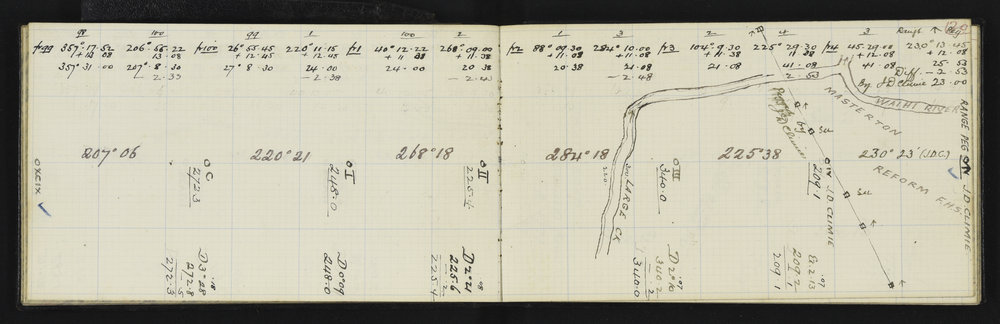 98 100 99 1 100 2
fr 99 357°.17.52 206°.55.22 fr 100 26°55.45 220°11.15 fr 1 40°12.22 268°09.00
+ 13.08 13.08 + 12.45 + 12.45 + 11 38 + 11.38
357°.31.00 207°.8.30 27°.8.30 24.00 24.00 20.38
— 2.33 — 2.38
1 3 2 4 3 Range Peg
fr 2 88° 09.30 284° 10.00 fr 3 104°.9.30 225° 29.30 fr 4 45.29.00 230°.13.45
+ 11.08 + 11.08 + 11.38 11 38 + 12.08 + 12.08
20.38 21.08 21.08 41.08 41.08 25.53
— 2.48 — 2.53 Diff. — 2.53
By J D Climie 23.00
207°06 220°21 268°18
284°18 225°38 230°23' (J.D.C.)
OXEIX
O C
272.3
O I
248.0
O II
225.4
D 3°28
272.8
.5
272.3
D 0°09
248.0
D 2°21
225.6
.2
225.4
LARGE CK
O III
340.0
D 2°10
340.2
.2
340.0
O IV
209.1
209.2
1
209.1
J.D. CLIMIE
MASTERTON
WAIHI RIVER
REFORM
RANGE PEG
ON
J.D CLIMIE